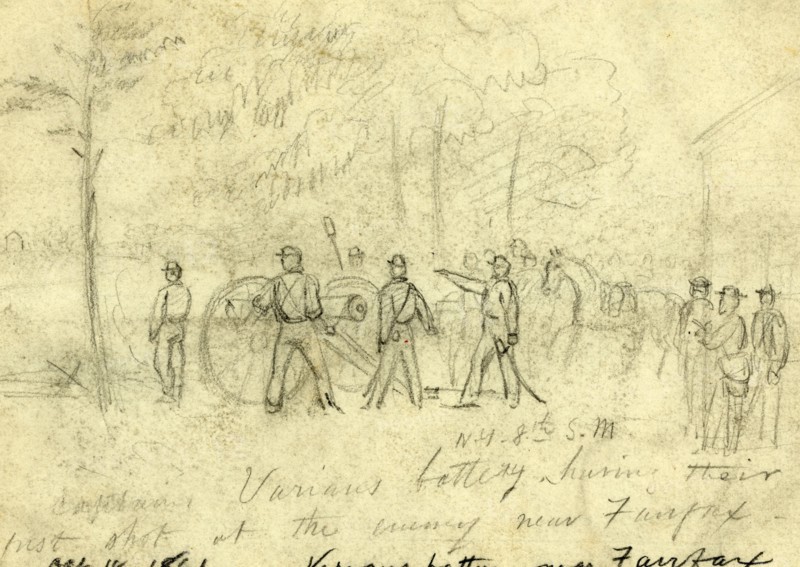 N.Y. 8th S.M.
captains Varians battery, having their
first shot at the enemy near Fairfax -
1861 Varians battery near Fairfax